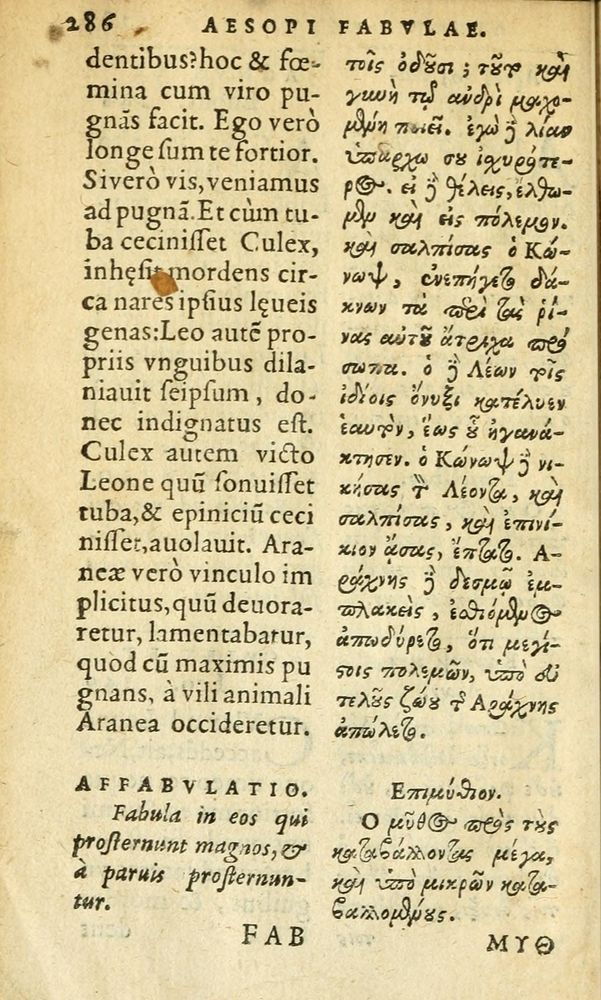 286 AESOPI FABVLAE.
dentibus? hoc & fœ-
mina cum viro pu-
gnãs facit. Ego verò
longe sum te fortior.
Si verò vis, veniamus
ad pugnã. Et cùm tu-
ba cecinisset Culex,
inhęsit mordens cir-
ca nares ipsius lęueis
genas: Leo autẽ pro-
priis vnguibus dila-
niauit seipsum, do-
nec indignatus est.
Culex autem victo
Leone quũ sonuisset
tuba, & epiniciũ ceci
nisset, auolauit. Ara-
neæ verò vinculo im
plicitus, quũ deuora-
retur, lamentabatur,
quòd cũ maximis pu
gnans, à vili animali
Aranea occideretur.
AFFABVLATIO.
Fabula in eos qui
prosternunt magnos, &
à paruis prosternun-
tur.
FAB
τοῖς ὀδοῦσι; τοῦτο καὶ
γυνὴ τῷ ἀνδρὶ μαχο-
μένη ποιεῖ. ἐγὼ δὲ λίαν
ὑπάρχω σου ἰσχυρότε-
ρος. εἰ δὲ θέλεις, ἔλθω-
μεν καὶ εἰς πόλεμον.
καὶ σαλπίσας ὁ Κώ-
νωψ, ἐνεπήγετο δά-
κνων τὰ περὶ τὰς ῥί-
νας αὐτοῦ ἄτριχα πρό
σωπα. ὁ δὲ Λέων τοῖς
ἰδίοις ὄνυξι κατέλυεν
ἑαυτὸν, ἕως οὗ ἠγανά-
κτησεν. ὁ Κώνωψ δὲ νι-
κήσας τὸν Λέοντα, καὶ
σαλπίσας, καὶ ἐπινί-
κιον ᾄσας, ἔπτατο. Ἀ-
ράχνης δὲ δεσμῷ ἐμ-
πλακεὶς, ἐσθιόμενος
ἀπωδύρετο, ὅτι μεγί-
στοις πολεμῶν, ὑπὸ εὐ
τελοῦς ζώου τῆς Ἀράχνης
ἀπώλετο.
Επιμύθιον.
Ο μῦθος πρὸς τοὺς
καταβάλλοντας μέγα,
καὶ ὑπὸ μικρῶν κατα-
βαλλομένους.
ΜΥΘ